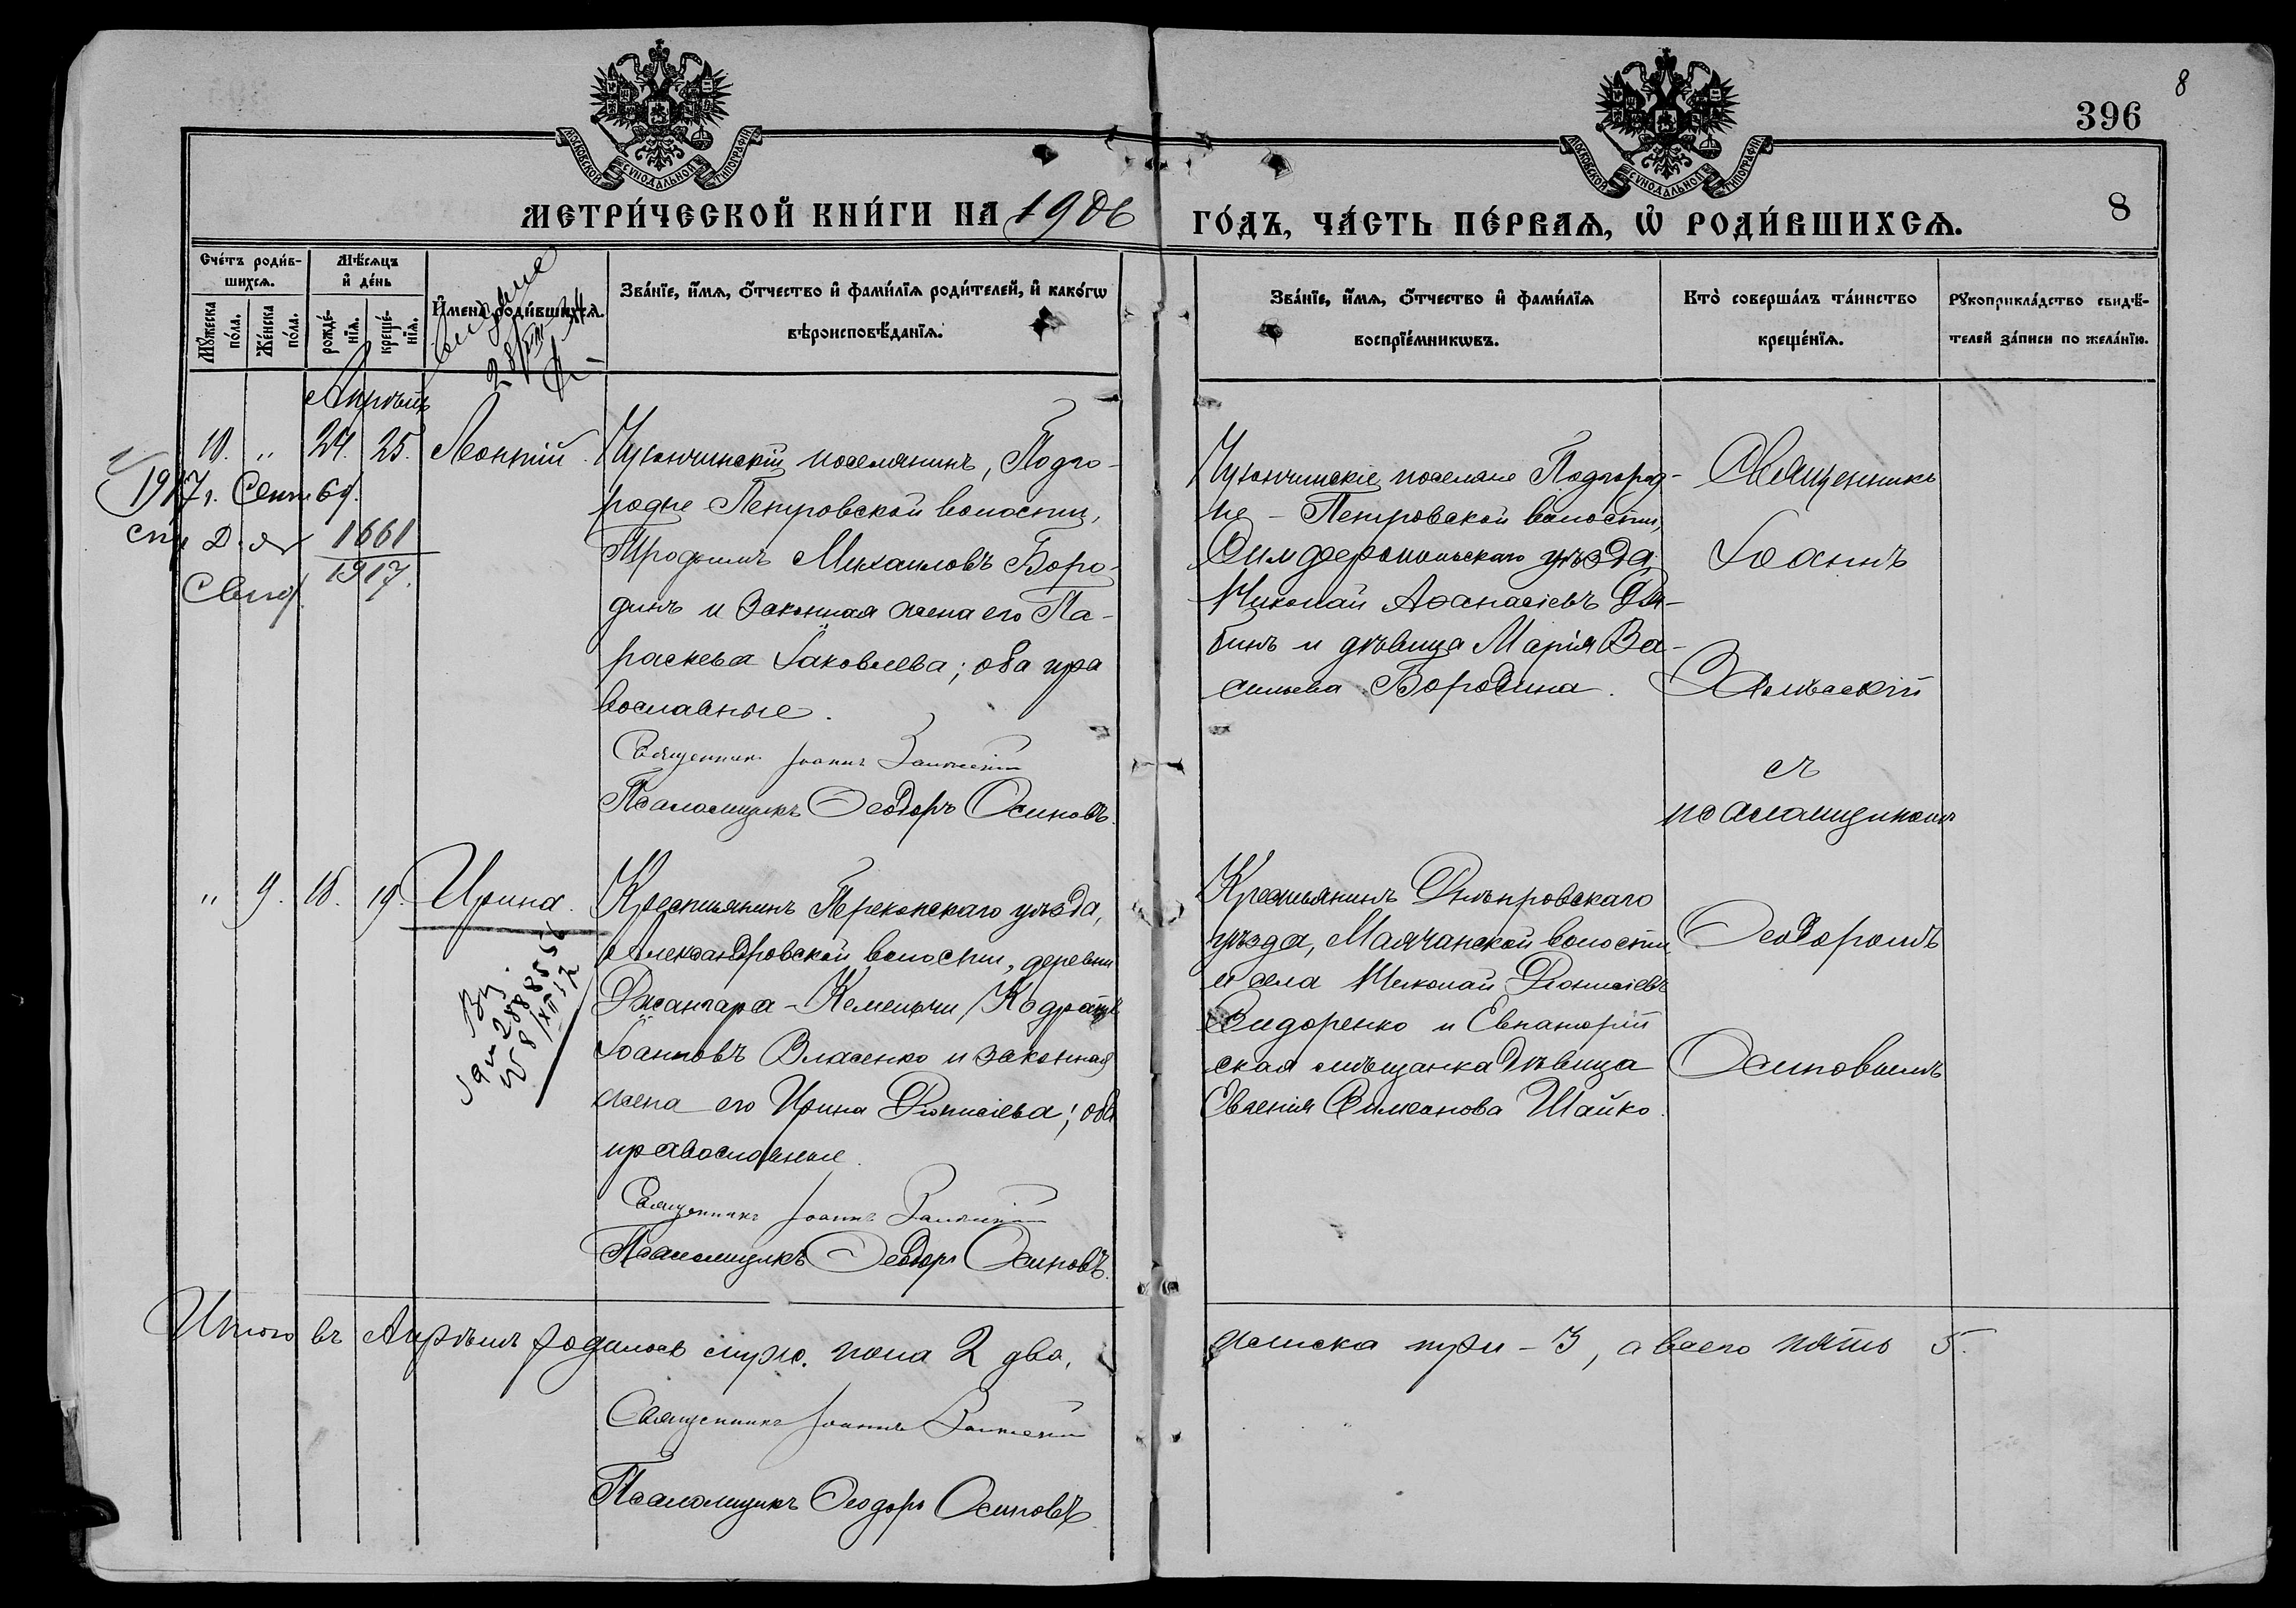 8
396
МОСКОВСКОЙ СѴНОДАЛЬНОЙ ТИПОГРАФІИ
МОСКОВСКОЙ СѴНОДАЛЬНОЙ ТИПОГРАФІИ
МЕТРИ́ЧЕСКОЙ КНИ́ГИ НА 1906 ГО́ДЪ, ЧА́СТЬ ПЕ́РВАѦ, Ѡ҆ РОДИ́ВШИХСѦ.
8
Сче́тъ роди́в-
шихсѧ.
Мꙋ́жеска по́ла.
Же́нска по́ла.
Мѣ́сѧцъ
и҆ де́нь
рожде́-
нїѧ.
креще́-
нїѧ.
И҆мена̀ роди́вшихсѧ.
Зва́нїе, и҆́мѧ, ѻ҆́тчество и҆ фами́лїѧ роди́телей, и҆ како́гѡ
вѣроисповѣ́данїѧ.
Зва́нїе, и҆́мѧ, ѻ҆́тчество и҆ фами́лїѧ
воспрїе́мникѡвъ.
Кто̀ соверша́лъ та́инство
креще́нїѧ.
Рꙋкоприкла́дство свидѣ́-
телей за́писи по жела́нїю.
28/VIII 24
Апрѣль
10. " 24. 25. Леонтій.
1917 г. Сент 6 д.
1661
1917.
поселянинъ, Подго-
родне Петровской волости,
Трофимъ Михаиловъ Боро-
динъ и законная жена его Па-
раскева Іаковлева; оба пра
вославные.
Священникъ Іоаннъ
Псаломщикъ Ѳеодоръ Осиповъ.
поселяне Подгород-
не - Петровской волости,
Симферопольскаго уѣзда
Николай Аѳанасіевъ
бинъ и дѣвица Марія Ва-
сильева Бородина.
Священникъ
Іоаннъ
съ
псаломщикомъ
Ѳеодоромъ
Осиповымъ
" 9. 18. 19. Ирина.
288 8556
8/XII 57
Крестьянинъ Перекопскаго уѣзда,
Александровской волости, деревни
Джангара - Кемельчи Кодратъ
Іоанновъ Власенко и законная
жена его Ирина Діонисіева; оба
православные.
Священникъ Іоаннъ
Псаломщикъ Ѳеодоръ Осиповъ.
Крестьянинъ Днѣпровскаго
уѣзда, Маячанской волости
и села Николай Діонисіевъ
Сидоренко и Евпаторій
ская мѣщанка дѣвица
Евгенія Симеонова Шайко.
Итого въ Апрѣлѣ родилось муж. пола 2 два,
женска три - 3, а всего пять 5.
Священникъ Іоаннъ
Псаломщикъ Ѳеодоръ Осиповъ